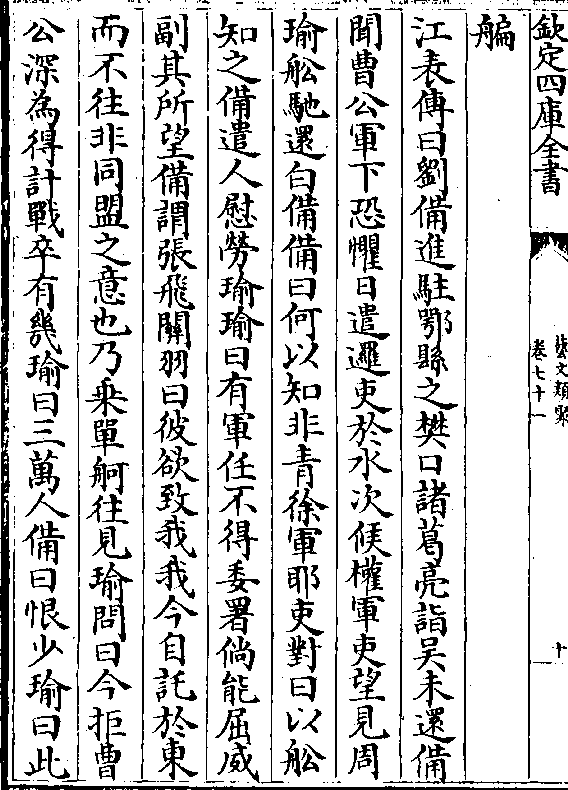 欽定四庫全書
藝文類聚
卷七十一
十一
艑
江表傳曰劉備進駐鄂縣之樊口諸葛亮詣吴未還備
聞曹公軍下恐懼日遣邏吏於水次候權軍吏望見周
瑜舩馳還白備備曰何以知非青徐軍耶吏對曰以舩
知之備遣人慰勞瑜瑜曰有軍任不得委署倘能屈威
副其所望備謂張飛關羽曰彼欲致我我今自託於東
而不往非同盟之意也乃乗單舸往見瑜問曰今拒曹
公深為得計戰卒有幾瑜曰三萬人備曰恨少瑜曰此